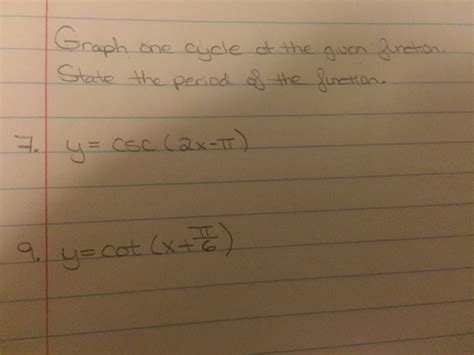 Graph one cycle of the given function.
State the period of the function.
7. y = csc (2x-π)
9. y = cot (x + π/6)